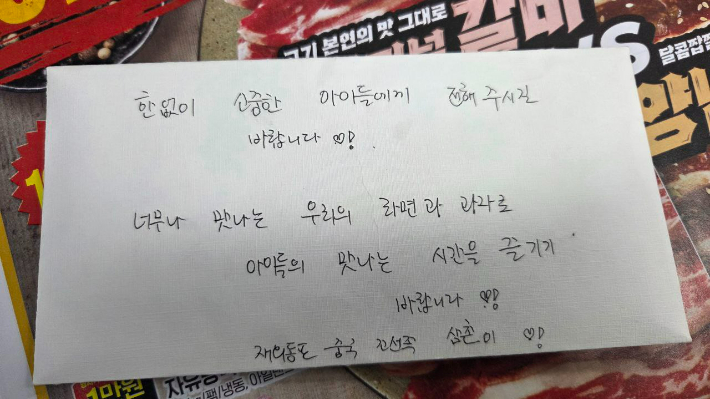 고기 본연의 맛 그대로
갈비
VS
달콤짭짤
한없이 소중한 아이들에게 전해 주시길
바랍니다 ♡!
너무나 맛나는 우리의 라면과 과자로
아이들의 맛나는 시간을 즐기기
바랍니다 ♡!
재외동포 중국 조선족 삼촌이 ♡!
1만원